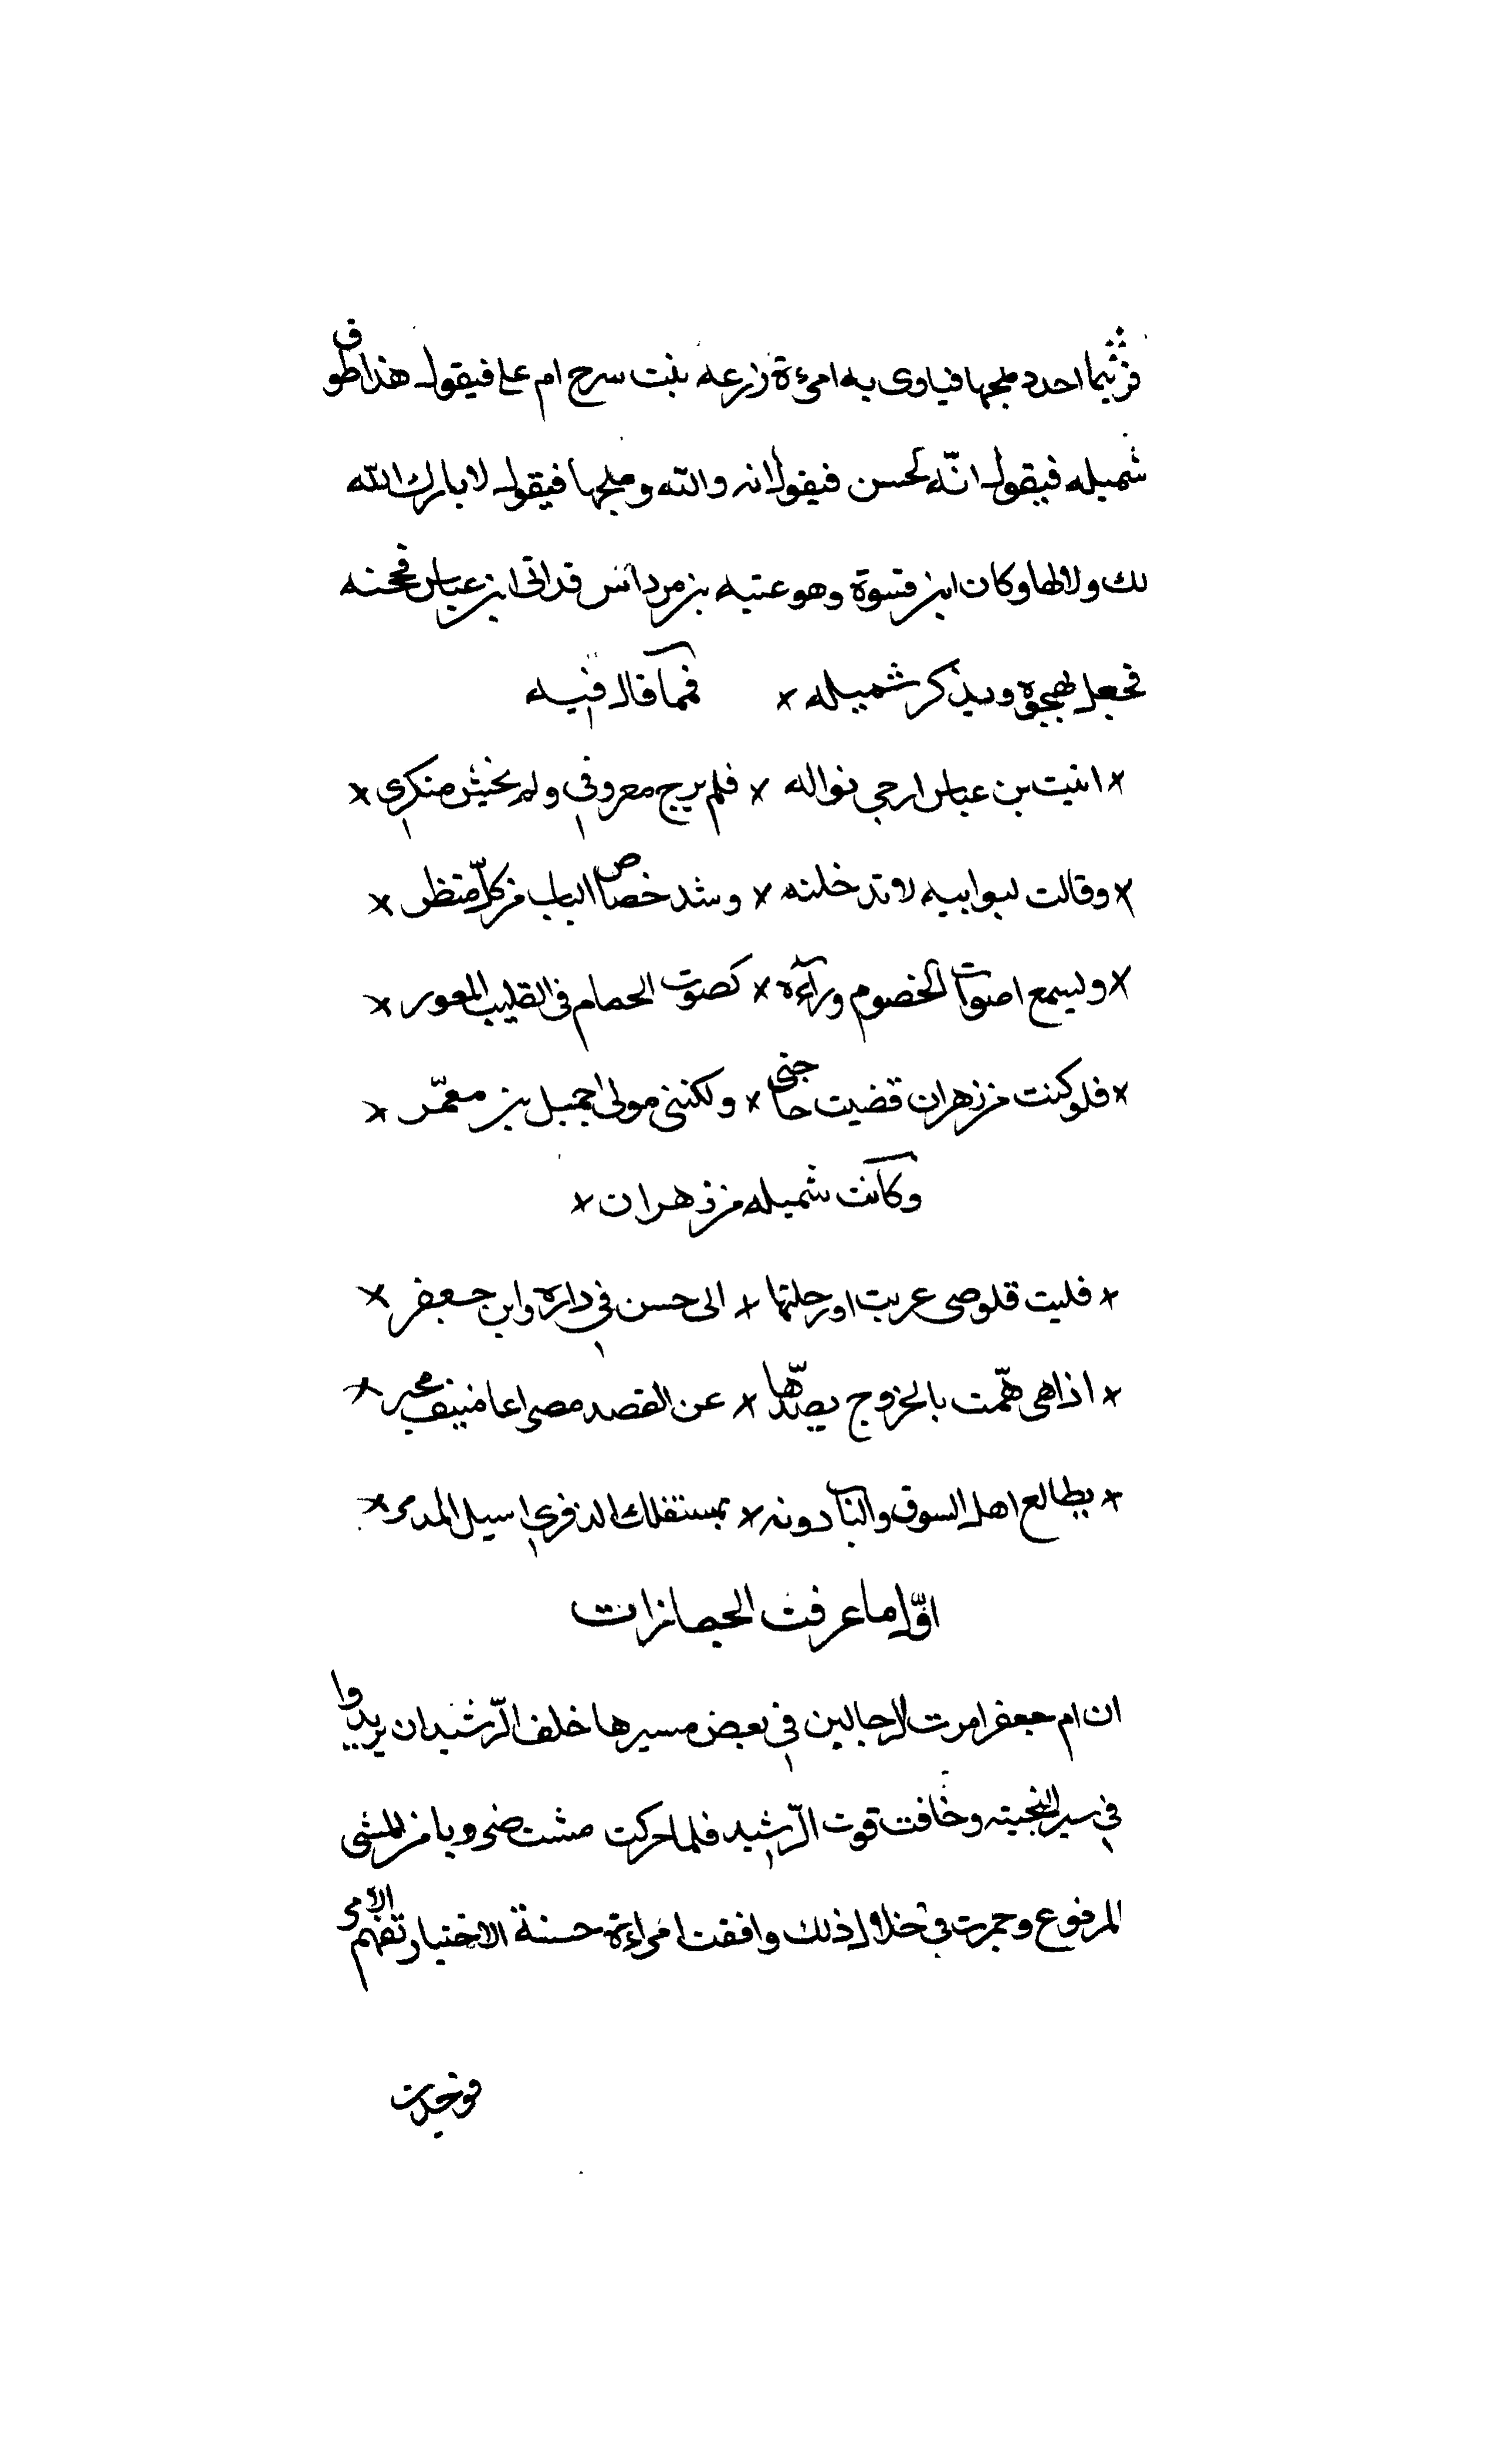 احدد ملجمها فياوى به امرءة زارعه بنت سرح ام على فيقول هذا طوق
شميله فيقول انّه لحسن فيقول انه والله وملجمها فيقول لا بارك الله
لك ولا لها وكان ابن فسوة وهو عتبه بن مرداس قد اتى ابن عباس فحجنه
فجعل يهجوه ويذكر شميله × فمما قال فيه
× اتيت بن عباس ارجى نواله × فلم يرج معروفي ولم يخش منكري ×
× وقالت لبوابيه لا تدخلنه × وشد خصاص الباب من كلّ منظر ×
× وليسمع اصوات الخصوم ورآءه × كصوت الحمام في القليب المعور ×
× فلو كنت من زهران قضيت حاجتى × ولكننى مولى اجميل بن معمّر ×
وكانت شميله من زهران ×
× فليت قلوصى عريت اورحلتها × الى حسن في داره وابن جعفر ×
× اذا هى همّت بالخروج يصدّها × عن القصد مصراعا منيف مجير ×
× يطالع اهل السوق والباب دونه × بمستفلك الذفرى اسيل المدمر ×
اوّل ما عرفت الجمازات
ان ام جعفر امرت الرحالين في بعض مسيرها خلف الرّشيد ان يزيدوا
في سير النجيبه وخافت فوت الرّشيد فلما حركت مشت ضروبا من المشى
المرفوع وجمزت في خلال ذلك وافقت امراءة حسنة الاختيار تفهم الامر
فوجدت